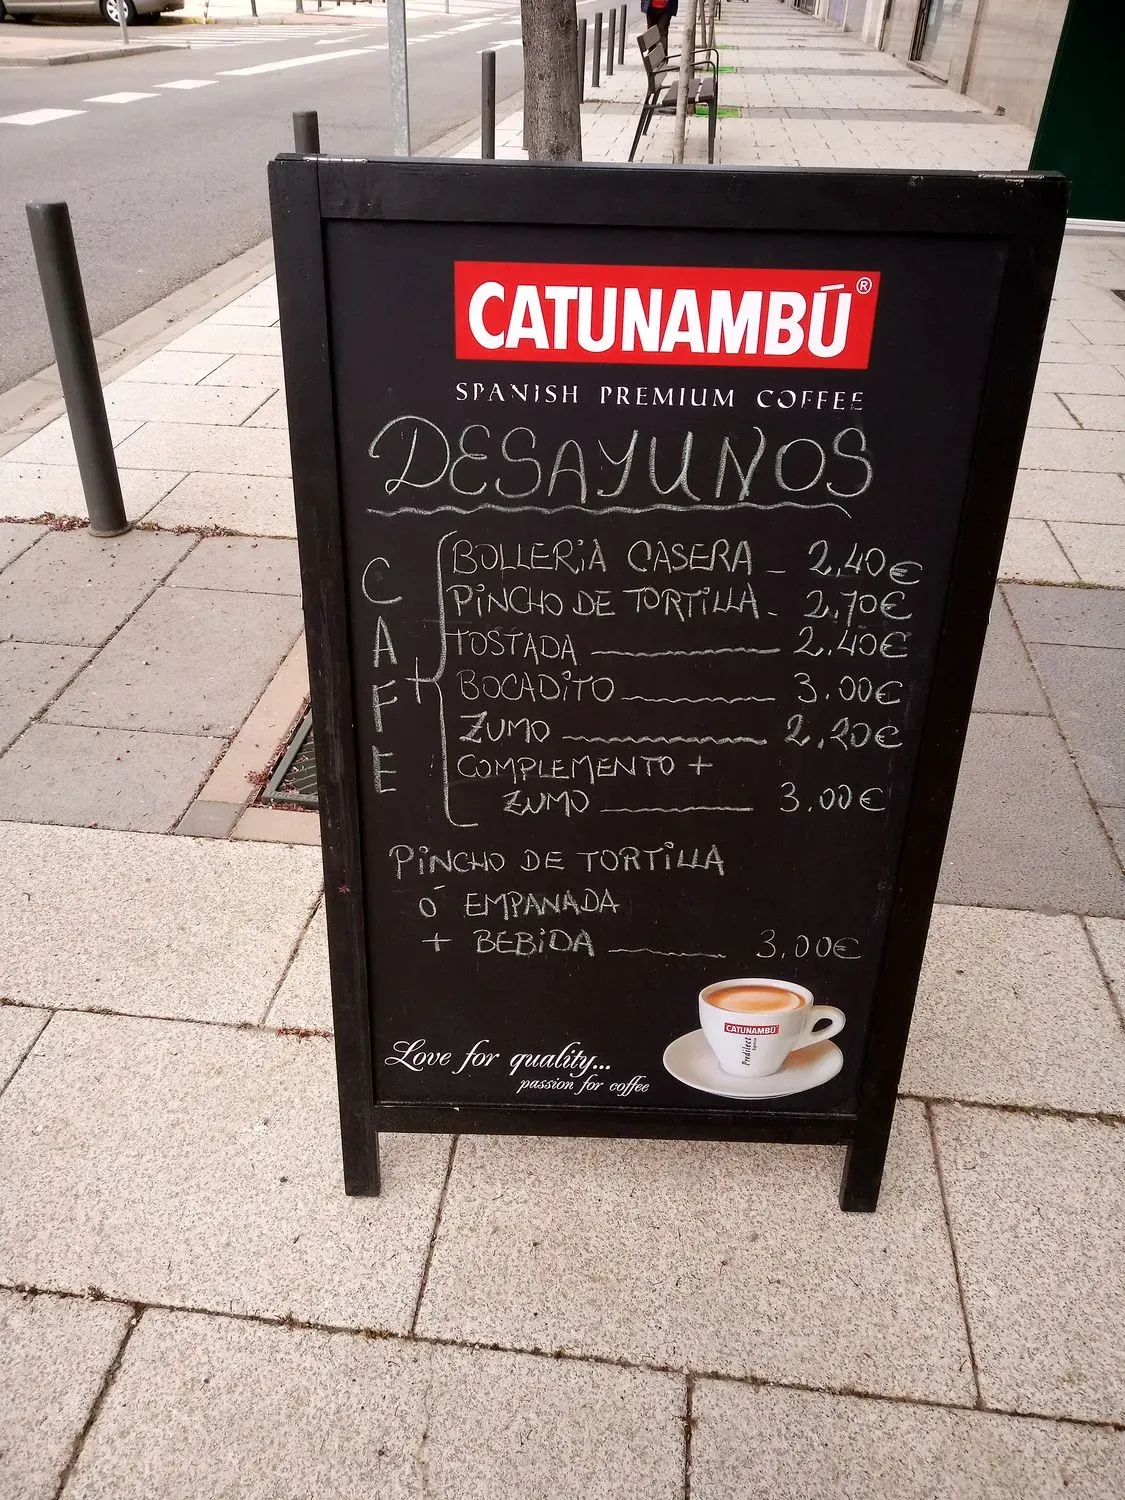 CATUNAMBÚ®
SPANISH PREMIUM COFFEE
DESAYUNOS
CAFE +
BOLLERiA CASERA - 2,40€
PiNCHO DE TORTiLLA - 2,70€
TOSTADA 2.40€
BOCADiTO 3.00€
ZUMO 2,20€
COMPLEMENTO +
ZUMO 3.00€
PiNCHO DE TORTiLLA
Ó EMPANADA
+ BEBiDA 3.00€
CATUNAMBÚ
Predilect
Love for quality...
passion for coffee